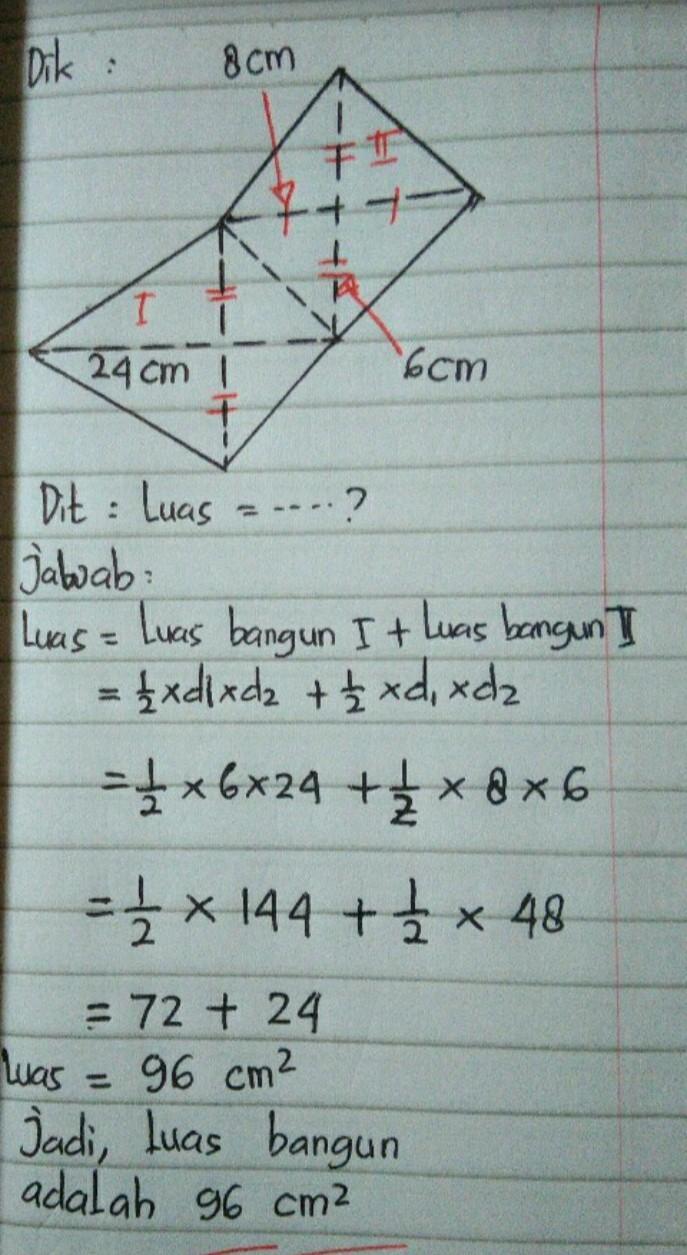 Dik : 8cm
II
I
24cm
6cm
Dit : Luas = ----. ?
jawab:
Luas = Luas bangun I + Luas bangun II
= 1/2 x d1 x d2 + 1/2 x d1 x d2
= 1/2 x 6 x 24 + 1/2 x 8 x 6
= 1/2 x 144 + 1/2 x 48
= 72 + 24
Luas = 96 cm²
jadi, luas bangun
adalah 96 cm²